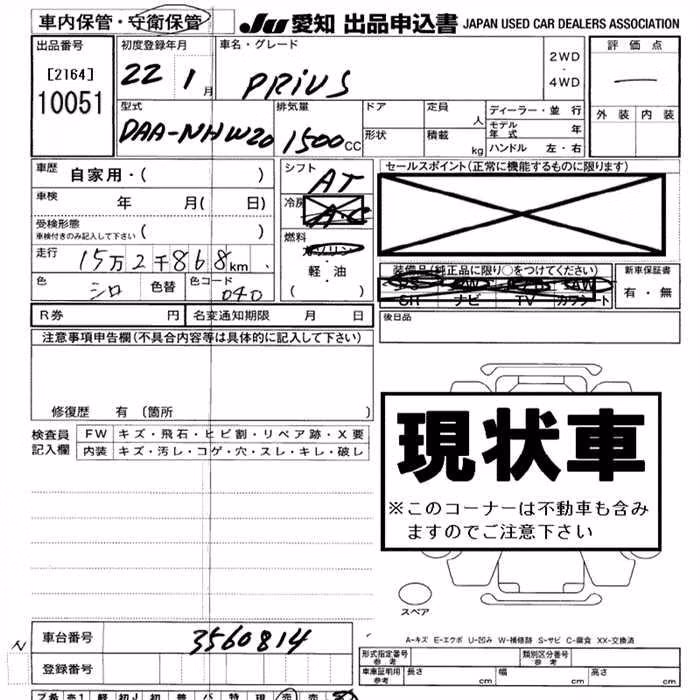 車内保管・守衛保管
JU 愛知 出品申込書 JAPAN USED CAR DEALERS ASSOCIATION
出品番号
[2164]
10051
初度登録年月
22 1月
車名・グレード
PRiUS
2WD
・
4WD
評価点
外装 内装
型式
DAA-NHW20
排気量
1500CC
ドア
形状
定員
人
積載
kg
ディーラー・並行
モデル年式 年
ハンドル 左・右
車歴
自家用・( )
車検
年 月( 日)
受検形態
車検付きのみ記入して下さい
( )
走行
15万2千868km
色
シロ
色替
色コード
040
シフト
AT
冷房
A・C
燃料
ガソリン
・
軽・油
( )
セールスポイント(正常に機能するものに限ります)
装備品(純品正に限り○をつけてください)
PS PW AW
SR ナビ TV カワシート
新車保証書
有・無
後日品
R券 円 名変通知期限 月 日
注意事項申告欄(不具合内容等は具体的に記入して下さい)
修復歴 有(箇所 )
検査員
記入欄
FW キズ・飛石・ヒビ割・リペア跡・X要
内装 キズ・汚レ・コゲ・穴・スレ・キレ・破レ
現状車
※このコーナーは不動車も含み
ますのでご注意下さい
スペア
A-キズ E-エクボ U-凹み W-補修跡 S-サビ C-腐食 XX-交換済
車台番号
3560814
登録番号
形式指定番号
参考
類別区分番号
参考
車庫証明用
参考
長さ cm 幅 cm 高さ cm